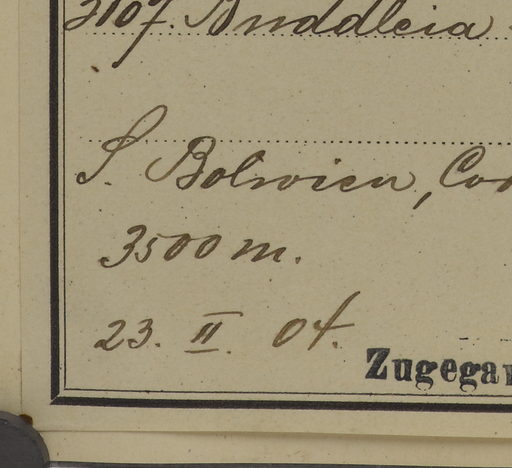 3107. Buddleia
S. Bolivien, Co
3500 m.
23. II. 04.
Zugega